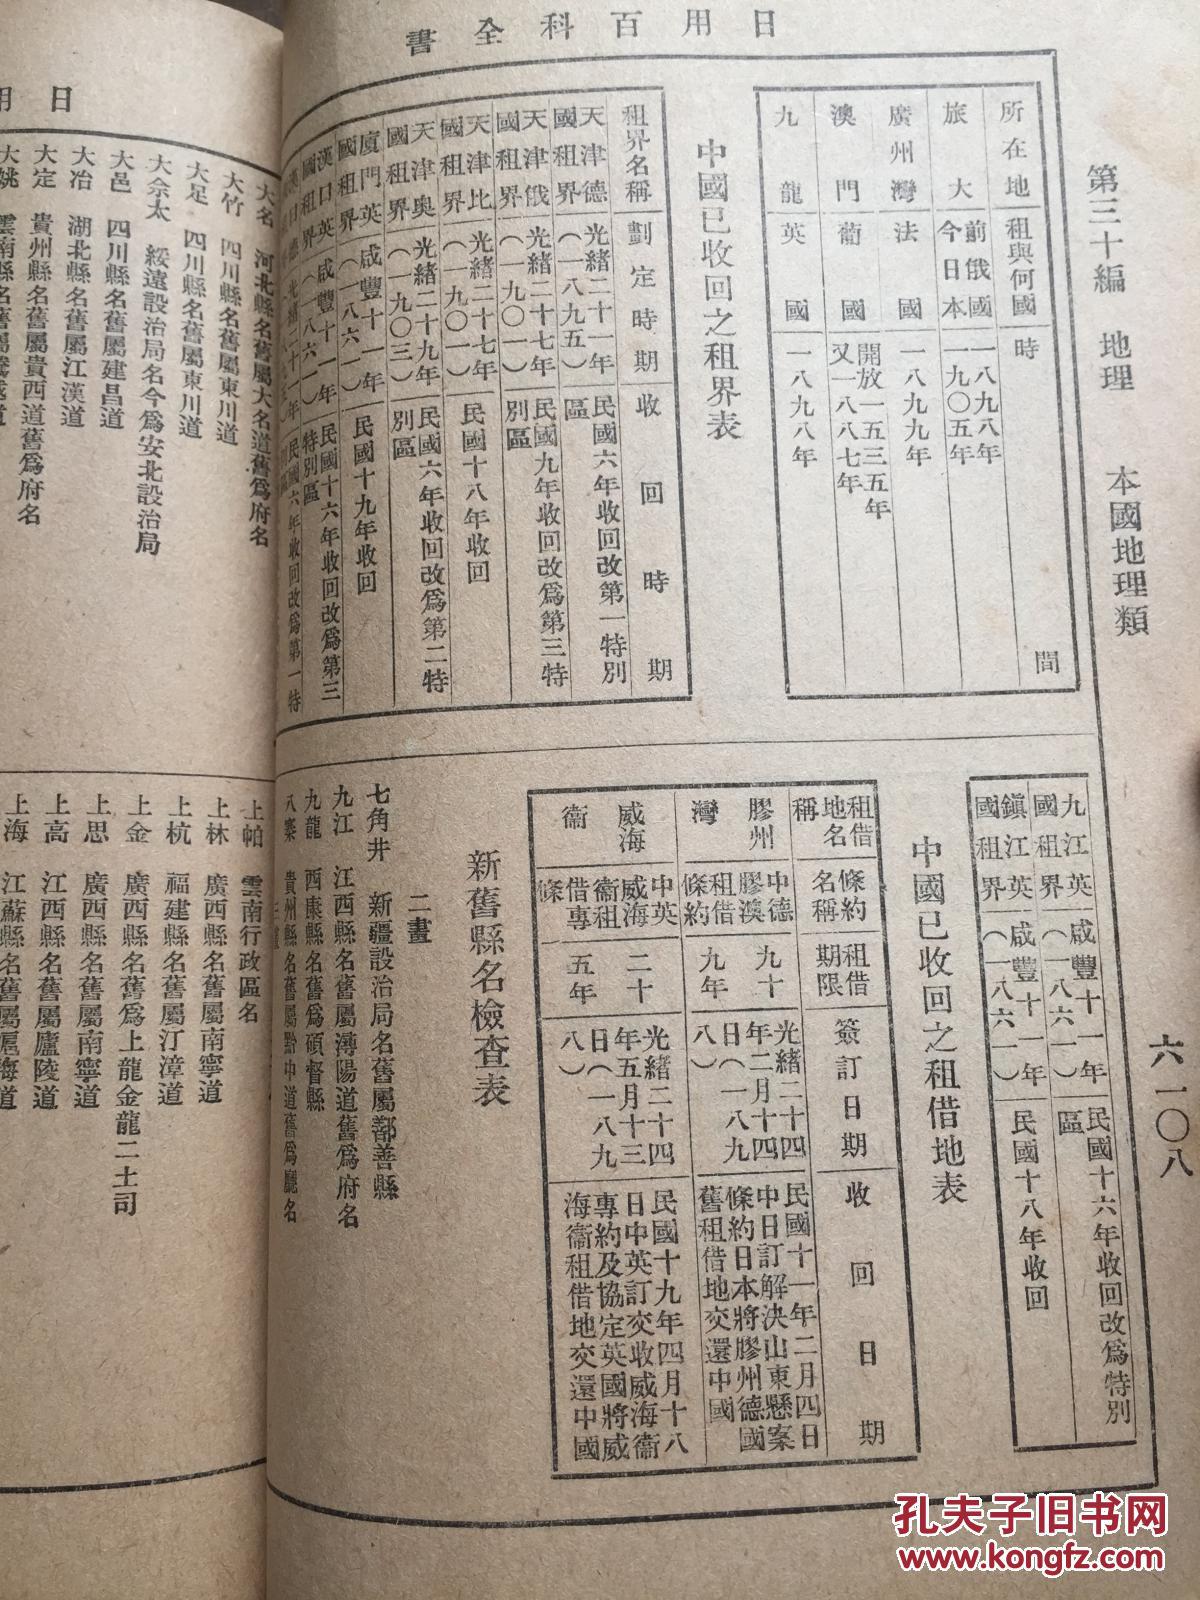 日用百科全書
第三十編 地理 本國地理類 六一〇八
所在地 租與何國 時間
旅大 前俄國今日本 一八九八年一九〇五年
廣州灣 法國 一八九九年
澳門 葡國 開放一五三五年又一八八七年
九龍 英國 一八九八年
中國已收回之租界表
租界名稱 劃定時期 收回時期
天津德國租界 光緒二十一年(一八九五) 民國六年收回改第一特別區
天津俄國租界 光緒二十七年(一九〇一) 民國九年收回改為第三特別區
天津比國租界 光緒二十七年(一九〇一) 民國十八年收回
天津奧國租界 光緒二十九年(一九〇三) 民國六年收回改為第二特別區
廈門英國租界 咸豐十一年(一八六一) 民國十九年收回
漢口英國租界 咸豐十一年(一八六一) 民國十六年收回改為第三特別區
漢口德 光緒二十一年 民國六年收回改為第一特
九江英國租界 咸豐十一年(一八六一) 民國十六年收回改為特別區
鎮江英國租界 咸豐十一年(一八六一) 民國十八年收回
中國已收回之租借地表
租借地名稱 條約名稱 租借期限 簽訂日期 收回日期
膠州灣 中德膠澳租借條約 九十九年 光緒二十四年二月十四日(一八九八) 民國十一年二月四日中日訂解決山東懸案條約日本將膠州德國舊租借地交還中國
威海衞 中英威海衞租借專條 二十五年 光緒二十四年五月十三日(一八九八) 民國十九年四月十八日中英訂交收威海衞專約及協定英國將威海衞租借地交還中國
新舊縣名檢查表
二畫
七角井 新疆設治局名舊屬鄯善縣
九江 江西縣名舊屬潯陽道舊為府名
九龍 西康縣名舊為碩督縣
八寨 貴州縣名舊屬黔中道舊為廳名
三畫
日用
大名 河北縣名舊屬大名道舊為府名
大竹 四川縣名舊屬東川道
大足 四川縣名舊屬東川道
大佘太 綏遠設治局名今為安北設治局
大邑 四川縣名舊屬建昌道
大冶 湖北縣名舊屬江漢道
大定 貴州縣名舊屬貴西道舊為府名
大姚 雲南縣名舊屬騰越道
上帕 雲南行政區名
上林 廣西縣名舊屬南寧道
上杭 福建縣名舊屬汀漳道
上金 廣西縣名舊為上龍金龍二土司
上思 廣西縣名舊屬南寧道
上高 江西縣名舊屬廬陵道
上海 江蘇縣名舊屬滬海道
孔夫子旧书网
www.kongfz.com